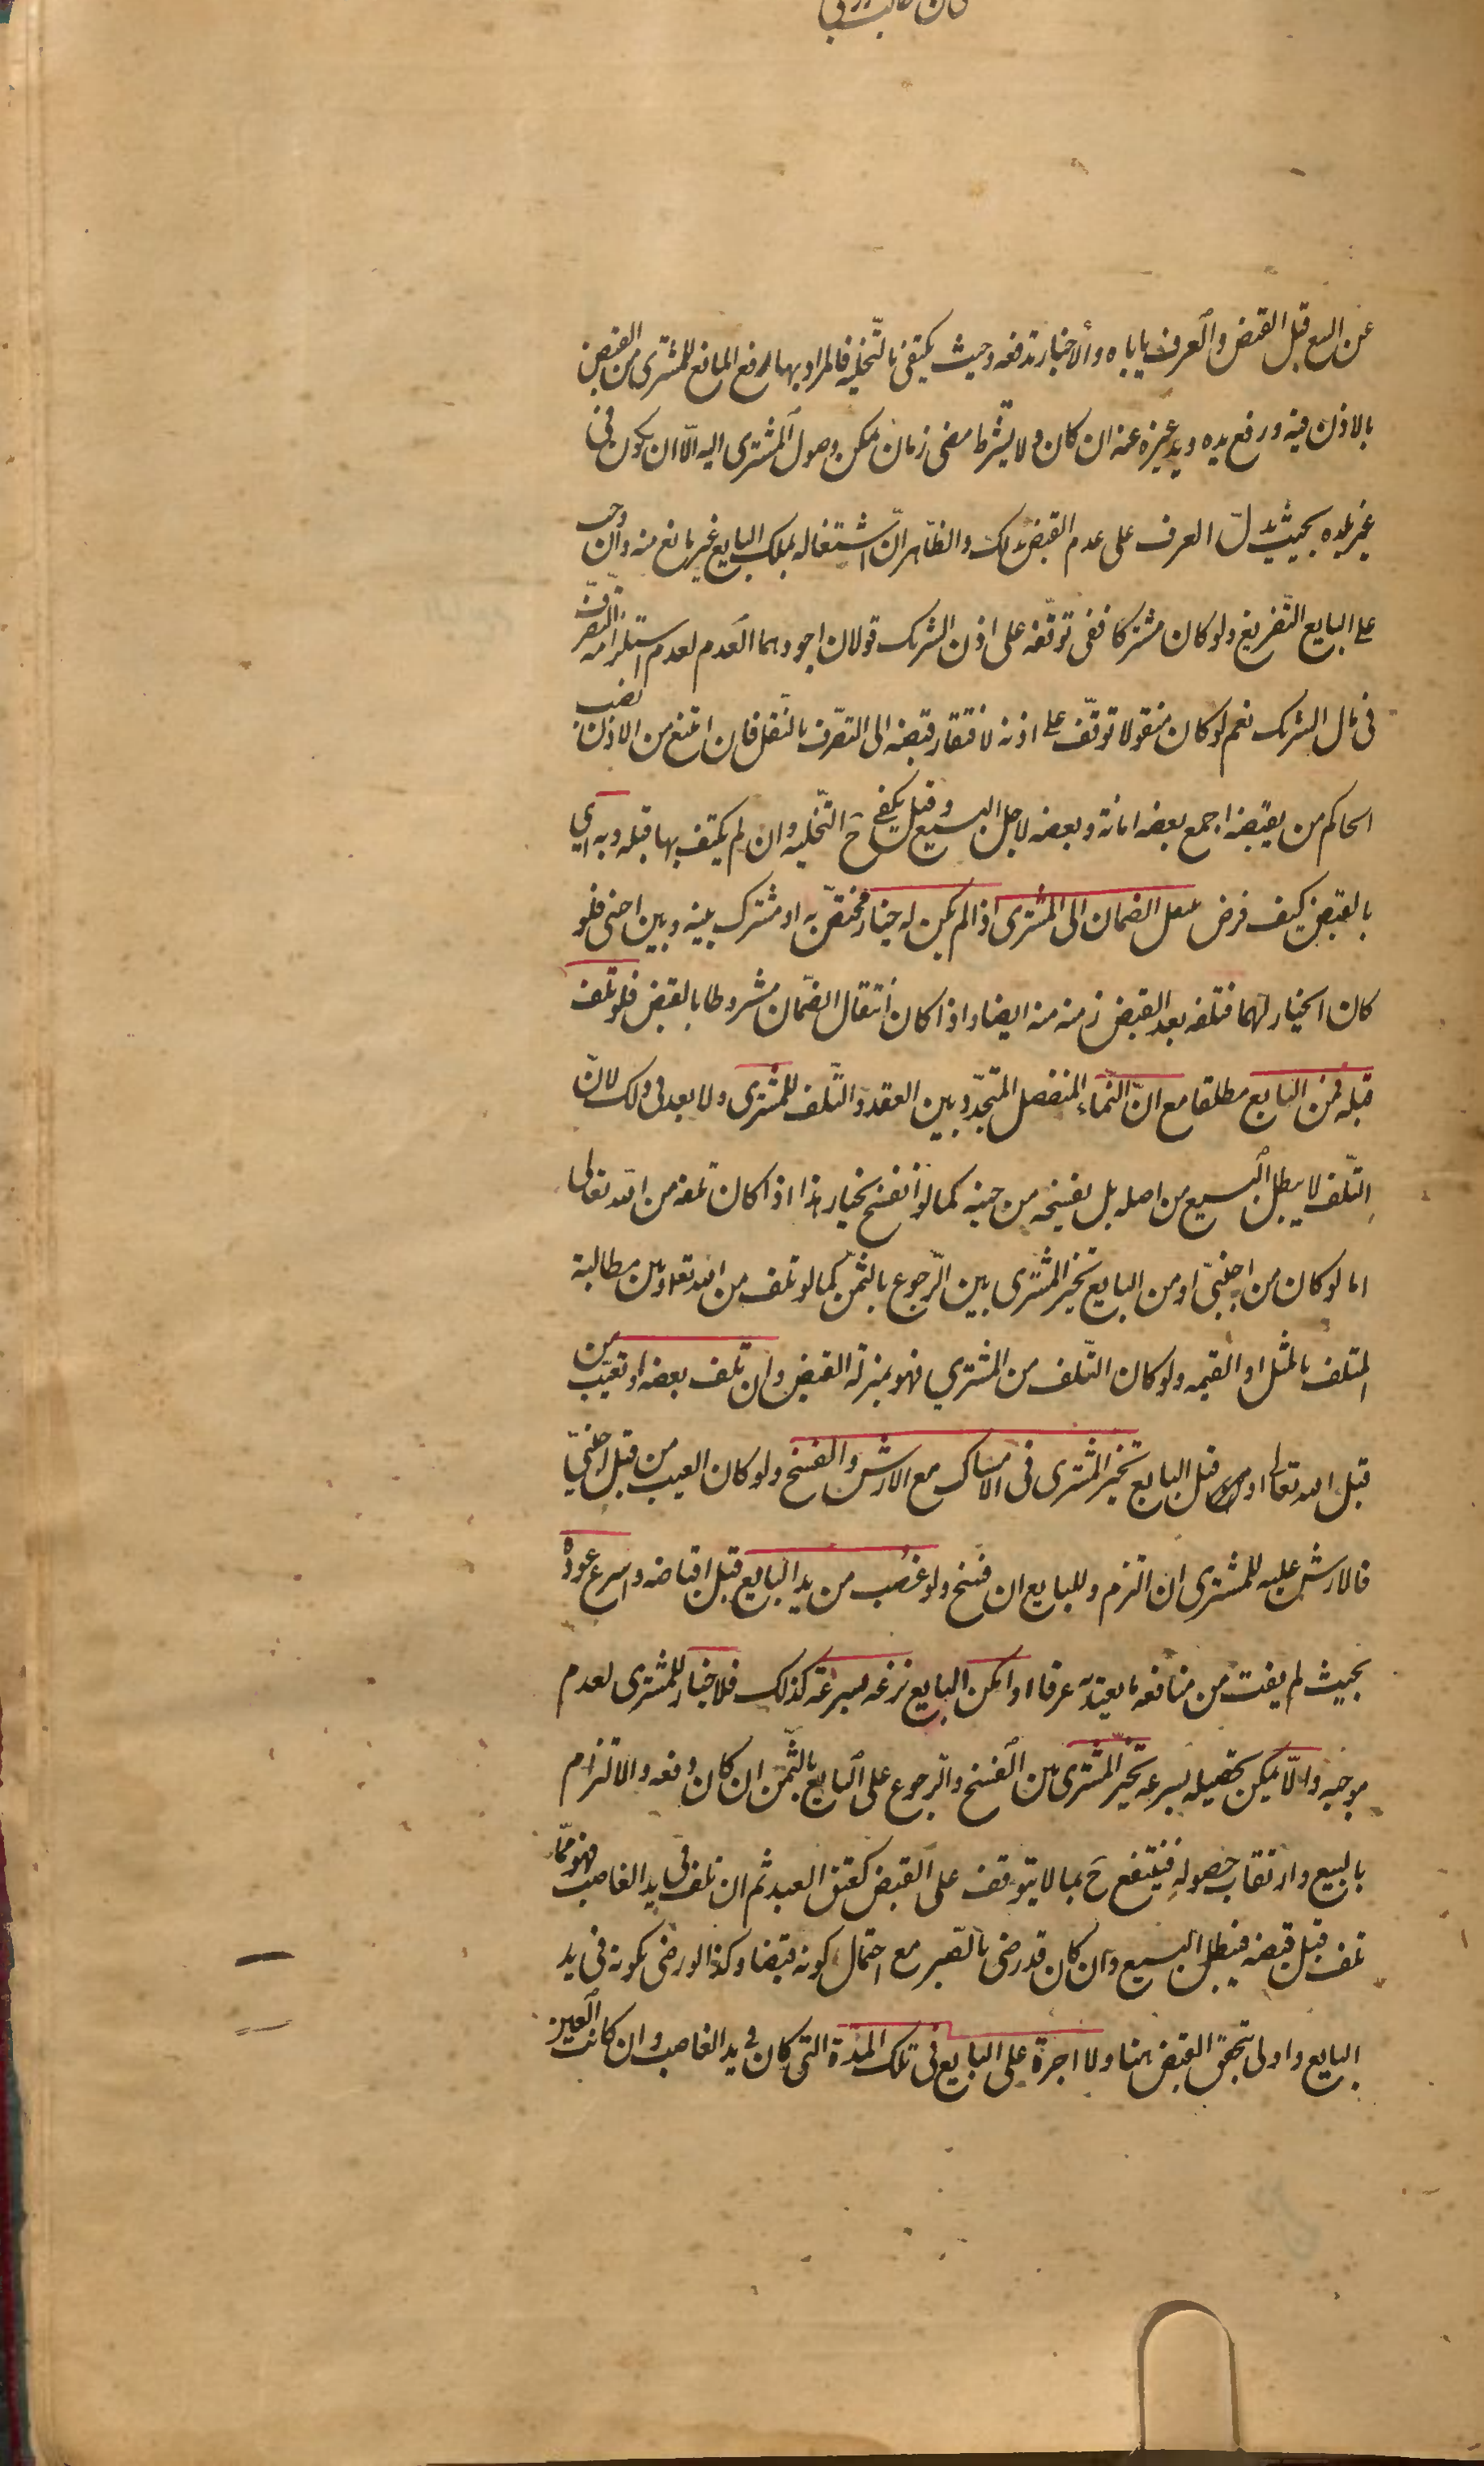 عن البيع قبل القبض والعرف ياباه والاخبار تدفعه وحيث يكتفى بالتخلية فالمراد بها رفع المانع للمشترى من القبض
بالاذن فيه ورفع يده ويد غيره عنه ان كان ولا يشترط مضى زمان يمكن وصول المشترى اليه الّا ان يكون فى
غير بلده بحيث يدلّ العرف على عدم القبض بذلك والظاهر انّ اشتغاله بملك البايع غير مانع منه وان وجب
على البايع التفريغ ولو كان مشتركا ففى توقّفه على اذن الشريك قولان اجودهما العدم لعدم استلزامه التصرّف
فى مال الشريك نعم لو كان منقولا توقّف على اذنه لافتقار قبضه الى التصرّف بالنقل فان امتنع من الاذن نصب
الحاكم من يقبضه اجمع بعضه امانة وبعضه لاجل البيع وقيل يكفى ح التخلية وان لم يكتف بها قبله وبه اى
بالقبض كيف فرض ينتقل الضمان الى المشترى اذا لم يكن له خيار مختصّ به او مشترك بينه وبين اجنبى فلو
كان الخيار لهما فتلفه بعد القبض زمنه منه ايضا واذا كان انتقال الضّمان مشروطا بالقبض فلو تلف
قبله فمن البايع مطلقا مع انّ النّماء المنفصل المتجدّد بين العقد والتّلف للمشترى ولا بعد فى ذلك لانّ
التّلف لا يبطل البيع من اصله بل يفسخه من حينه كما لو انفسخ بخيار هذا اذا كان تلفه من الله تعالى
اما لو كان من اجنبىّ او من البايع تخيّر المشترى بين الرّجوع بالثمن كما لو تلف من الله تعالى وبين مطالبة
المتلف بالمثل او القيمه ولو كان التّلف من المشتري فهو بمنزلة القبض وان تلف بعضه او تعيّب من
قبل الله تعالى او من قبل البايع تخيّر المشترى فى الامساك مع الارش والفسخ ولو كان العيب من قبل اجنبىّ
فالارش عليه للمشترى ان التزم وللبايع ان فسخ ولو غصب من يد البايع قبل اقباضه واسرع عوده
بحيث لم يفت من منافعه ما يعتدّ به عرفا او امكن البايع نزعه بسرعة كذلك فلا خيار للمشترى لعدم
موجبه والّا يمكن تحصيله بسرعة تخيّر المشترى بين الفسخ والرجوع على البايع بالثّمن ان كان دفعه والالتزام
بالبيع وارتقاب حصوله فينتفع ح بما لا يتوقف على القبض كعتق العبد ثم ان تلف فى يد الغاصب فهو ممّا
تلف قبل قبضه فيبطل البيع وان كان قد رضى بالصّبر مع احتمال كونه قبضا وكذا لو رضى بكونه فى يد
البايع واولى بتحقق القبض هنا ولا اجرة على البايع فى تلك المدّة التى كان فى يد الغاصب وان كانت العين